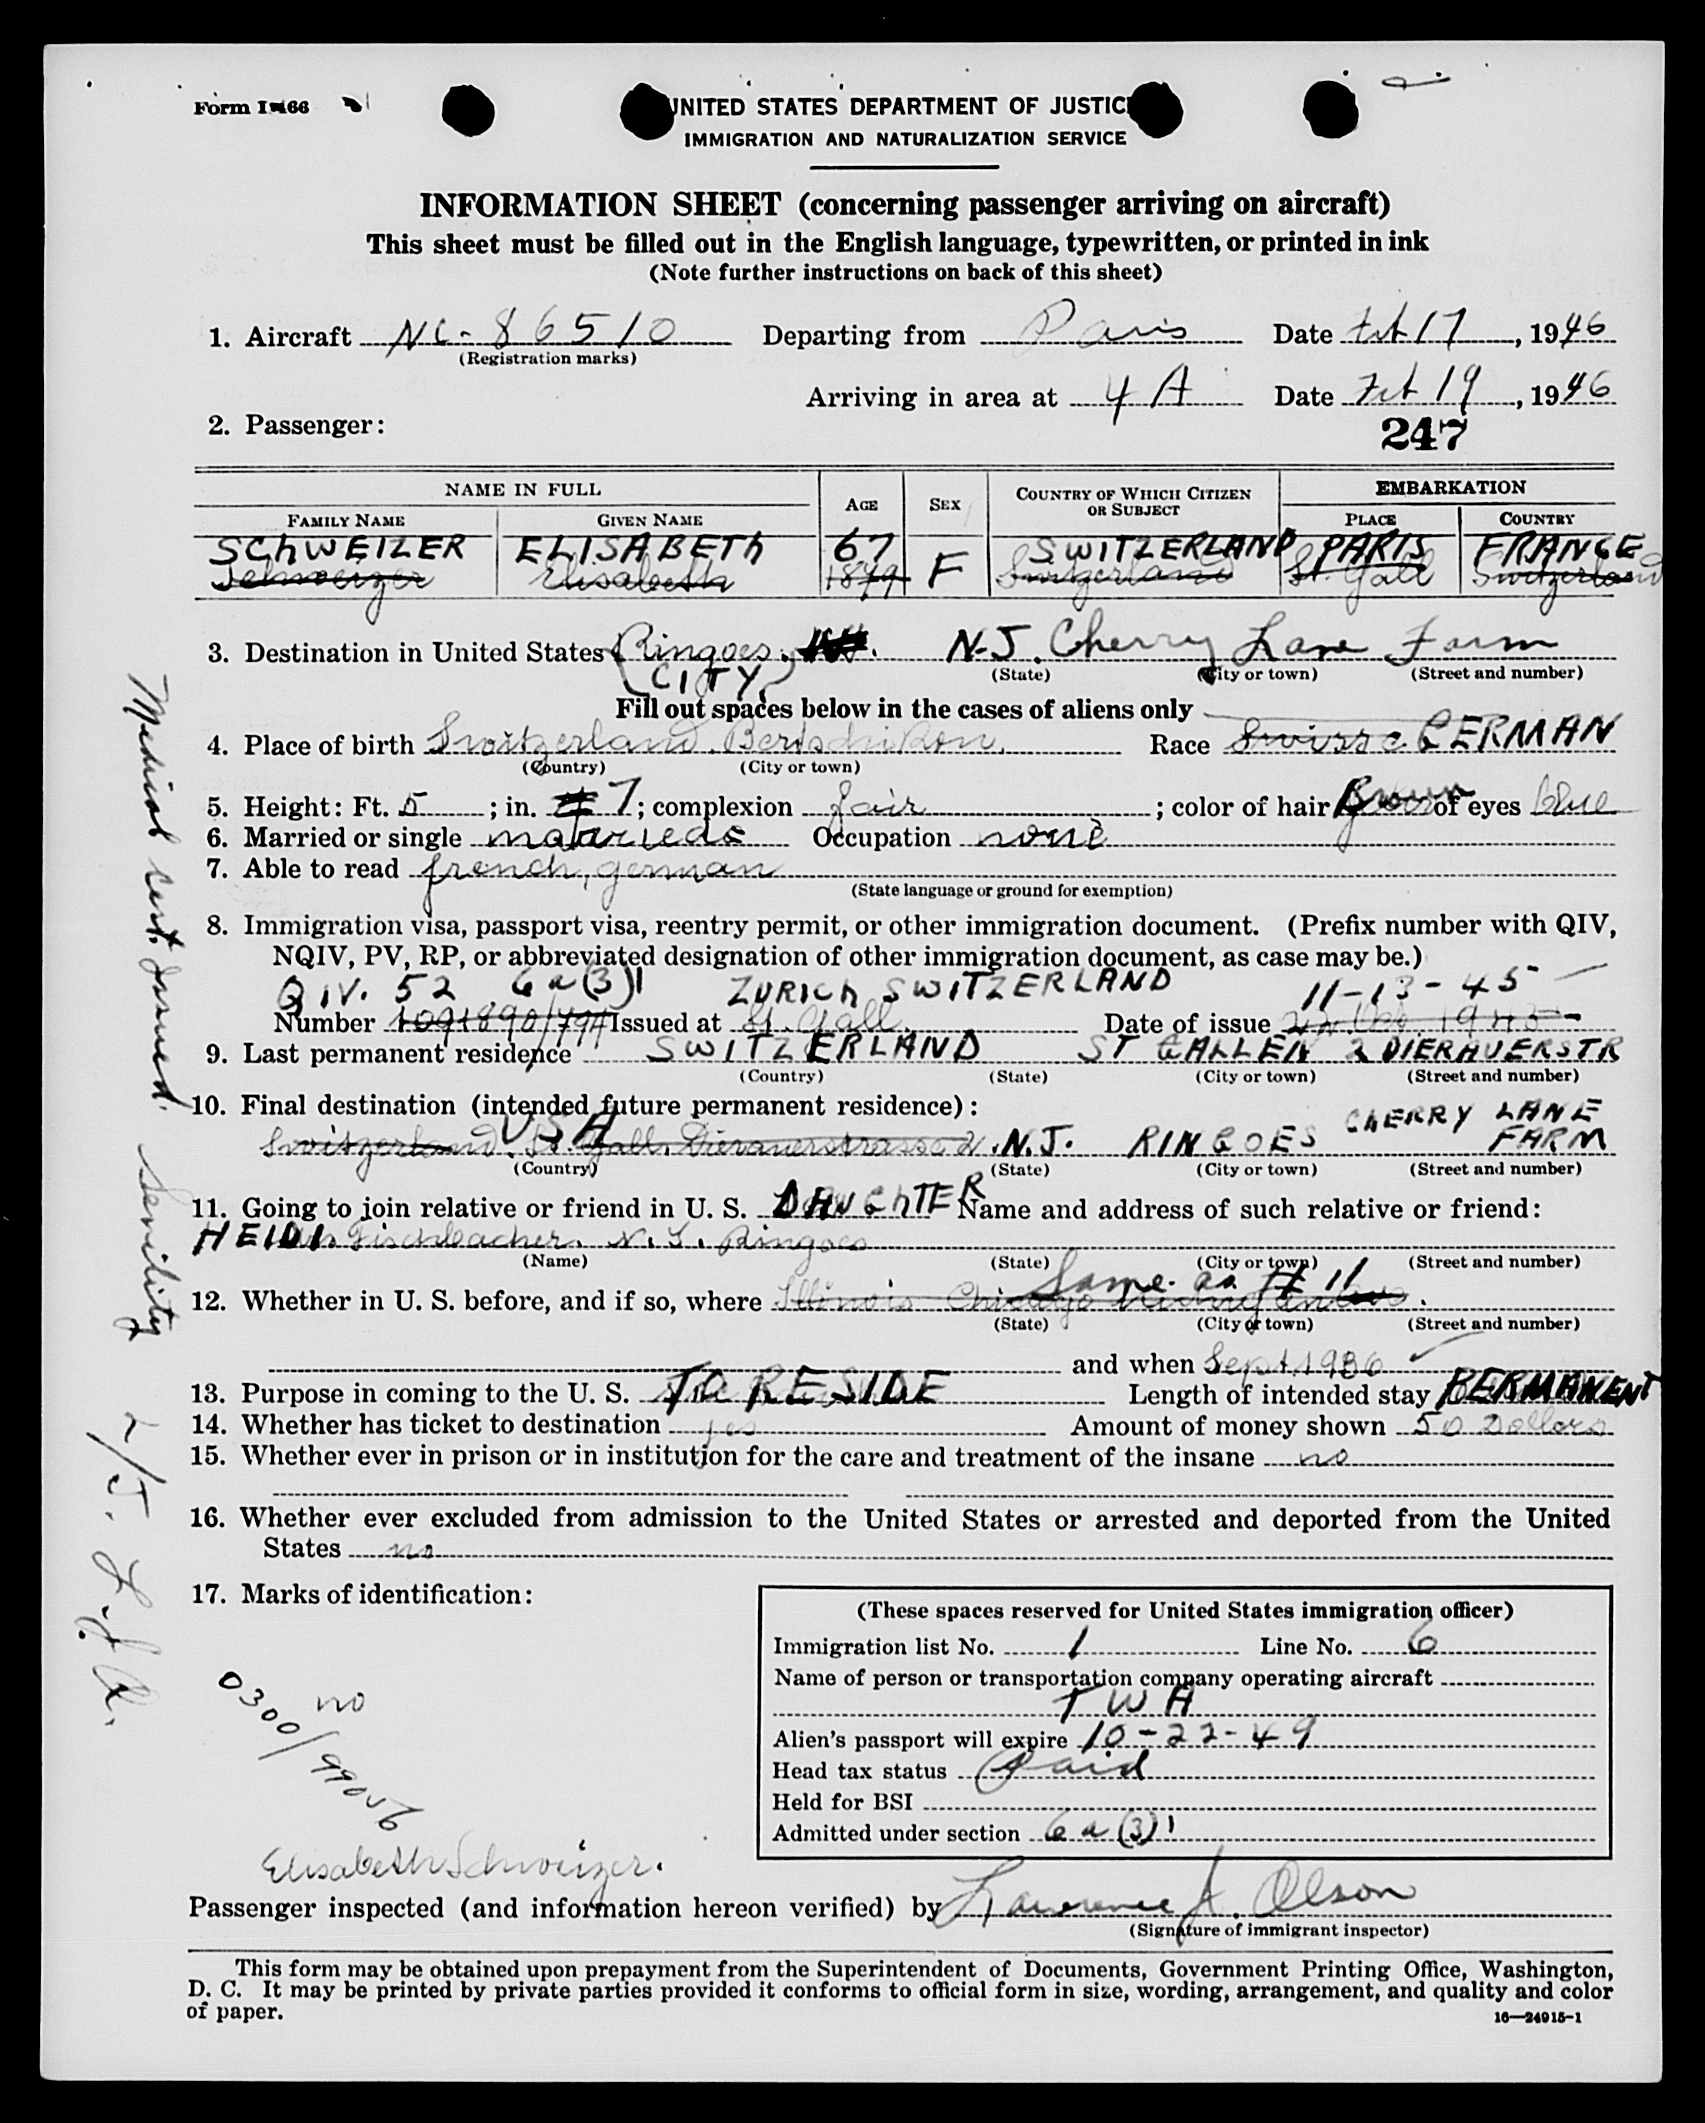 Form I-466
UNITED STATES DEPARTMENT OF JUSTICE
IMMIGRATION AND NATURALIZATION SERVICE
INFORMATION SHEET (concerning passenger arriving on aircraft)
This sheet must be filled out in the English language, typewritten, or printed in ink
(Note further instructions on back of this sheet)
1. Aircraft NC-86510 Departing from Paris Date Feb 17, 1946
(Registration marks)
Arriving in area at 4 A Date Feb 19, 1946
2. Passenger: 247
NAME IN FULL AGE SEX COUNTRY OF WHICH CITIZEN OR SUBJECT EMBARKATION
FAMILY NAME GIVEN NAME PLACE COUNTRY
SCHWEIZER ELISABETH 67 SWITZERLAND PARIS FRANCE
Schweizer Elisabeth 1879 F Switzerland St. Gall Switzerland
3. Destination in United States Ringoes, N.J. Cherry Lane Farm
(CITY) (State) (City or town) (Street and number)
Fill out spaces below in the cases of aliens only
4. Place of birth Switzerland Bertschikon Race Swiss GERMAN
(Country) (City or town)
5. Height: Ft. 5; in. 7; complexion fair; color of hair Brown of eyes blue
6. Married or single married Occupation none
7. Able to read french, german
(State language or ground for exemption)
8. Immigration visa, passport visa, reentry permit, or other immigration document. (Prefix number with QIV,
NQIV, PV, RP, or abbreviated designation of other immigration document, as case may be.)
QIV. 52 6a(3)1 ZURICH SWITZERLAND 11-13-45
Number 1091890/794 Issued at St. Gall Date of issue 22 Oct. 1945
9. Last permanent residence SWITZERLAND ST GALLEN 2 DIERAUERSTR
(Country) (State) (City or town) (Street and number)
10. Final destination (intended future permanent residence):
USA CHERRY LANE
Switzerland. St. Gall. Dierauerstrasse 2. N.J. RINGOES FARM
(Country) (State) (City or town) (Street and number)
11. Going to join relative or friend in U. S. DAUGHTER Name and address of such relative or friend:
HEIDI Fischbacher. N. J. Ringoes
(Name) (State) (City or town) (Street and number)
Same as # 11
12. Whether in U. S. before, and if so, where Illinois Chicago
(State) (City or town) (Street and number)
and when Sept. 1936
13. Purpose in coming to the U. S. TO RESIDE Length of intended stay PERMANENT
14. Whether has ticket to destination yes Amount of money shown 50 Dollars
15. Whether ever in prison or in institution for the care and treatment of the insane no
16. Whether ever excluded from admission to the United States or arrested and deported from the United
States no
17. Marks of identification:
no
0300/99056
(These spaces reserved for United States immigration officer)
Immigration list No. 1 Line No. 6
Name of person or transportation company operating aircraft
TWA
Alien's passport will expire 10-22-49
Head tax status Paid
Held for BSI
Admitted under section 6a(3)1
Elisabeth Schweizer.
Passenger inspected (and information hereon verified) by Lawrence J. Olson
(Signature of immigrant inspector)
This form may be obtained upon prepayment from the Superintendent of Documents, Government Printing Office, Washington,
D. C. It may be printed by private parties provided it conforms to official form in size, wording, arrangement, and quality and color
of paper.
16—24915-1
Medical Cert. Issued. Senility